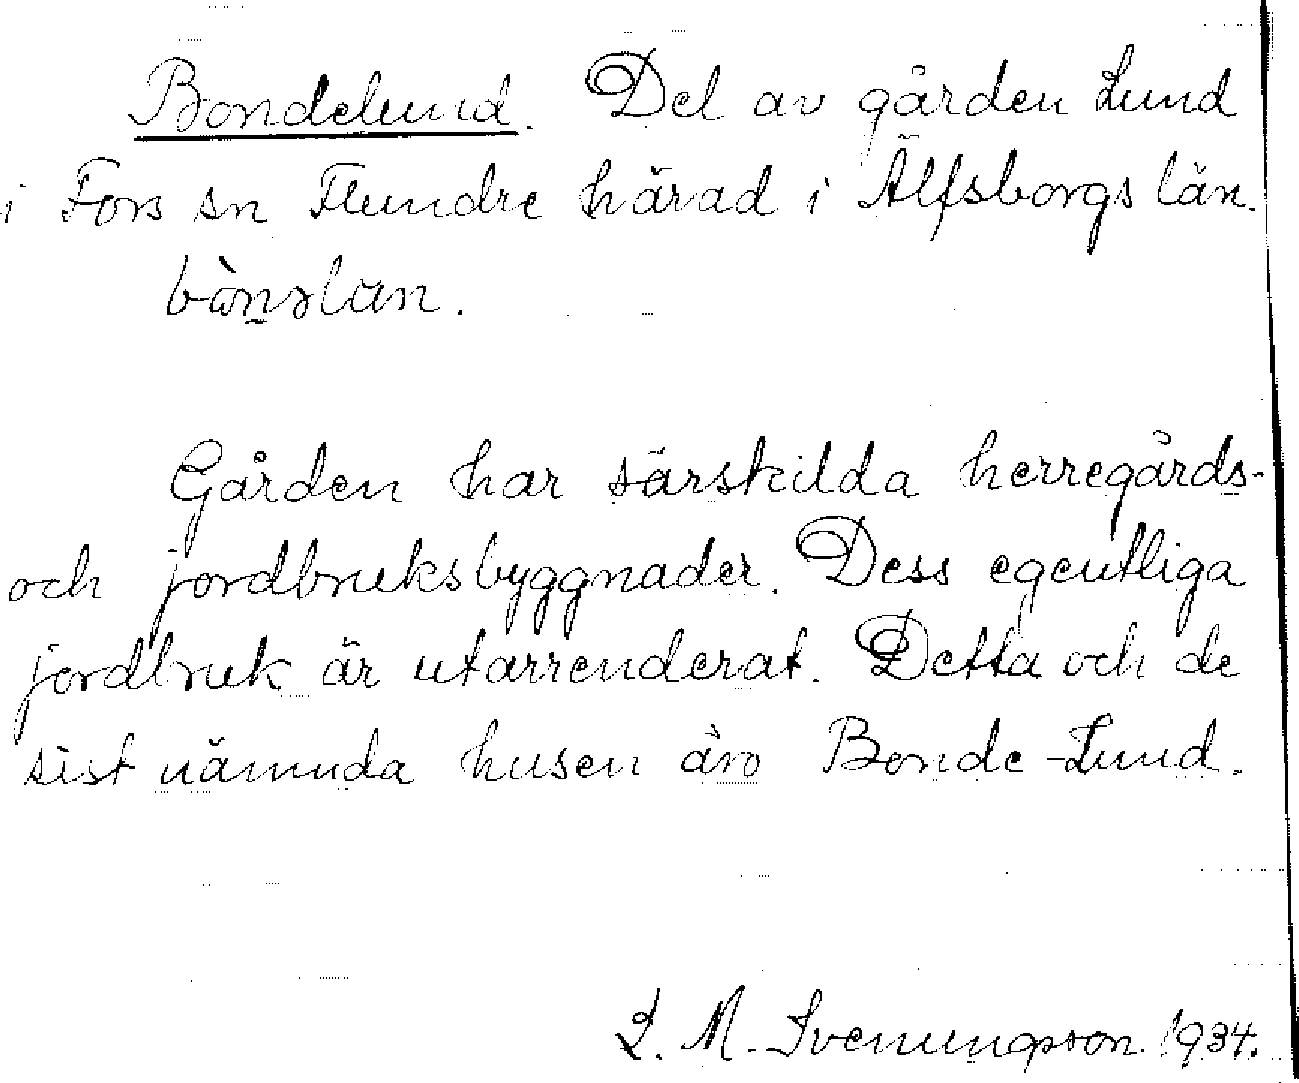 Bondelund. Del av gården Lund
i Fors sn Flundre härad i Älfsborgs län.
Gården har särskilda herregårds-
och jordbruksbyggnader. Dess egentliga
jordbruk är utarrenderat. Detta och de
sist nämnda husen äro Bonde-Lund.
L. M. Svenungsson 1934.